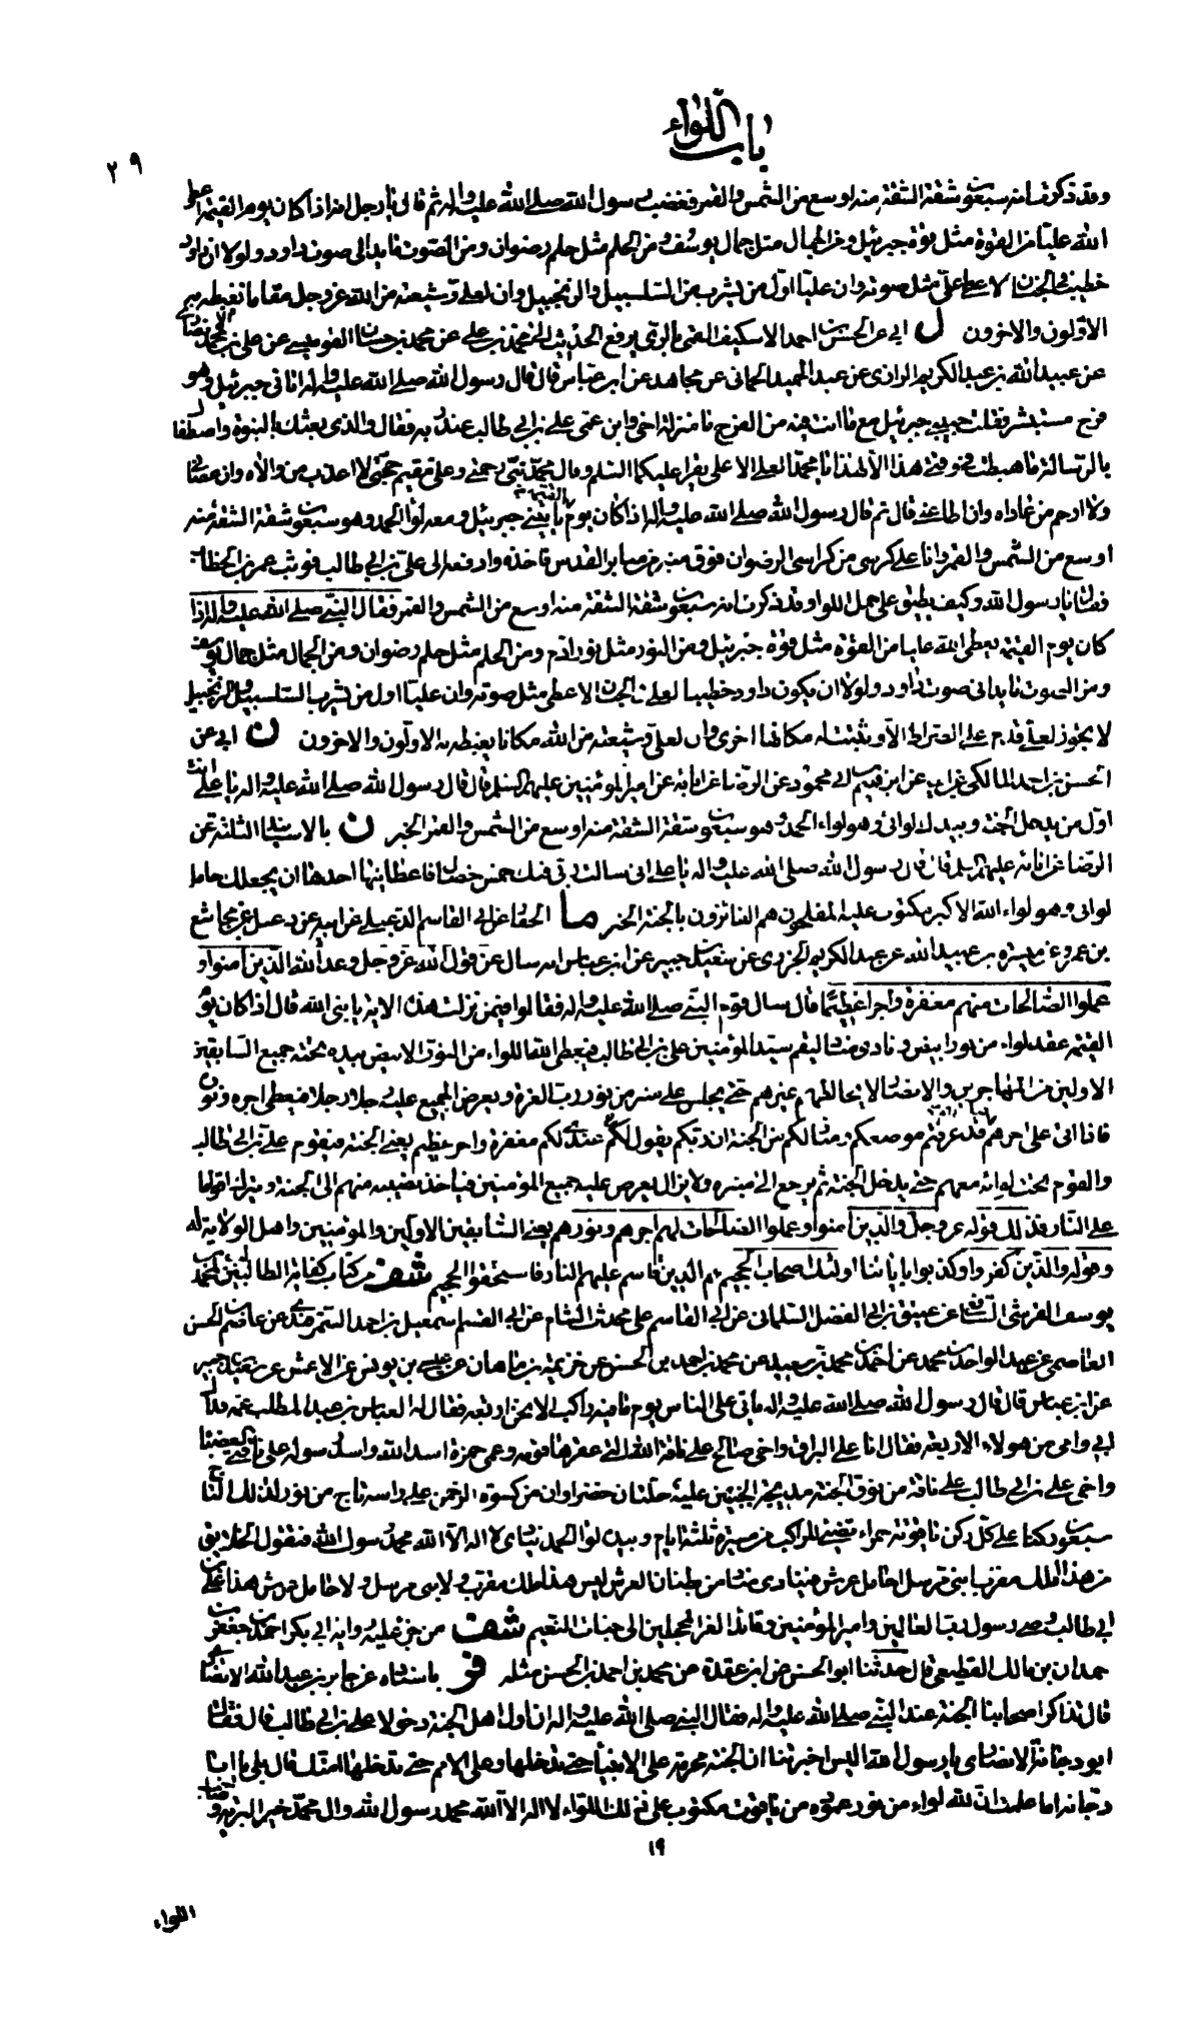 باب اللواء
٣٩
وقد ذكرت انه سبعون شقة الشقة منه اوسع من الشمس والقمر فغضب رسول الله صلى الله عليه واله ثم قال يا رجل انه اذا كان يوم القيمة اعطى
الله عليا من القوة مثل قوة جبرئيل ومن الجمال مثل جمال يوسف ومن الحلم مثل حلم رضوان ومن الصوت ما يدانى صوت داود ولولا ان داود
خطيب فى الجنان لاعطى على مثل صوته وان عليا اول من يشرب من السلسبيل والزنجبيل وان لعلى وشيعته من الله عز وجل مقاما يغبطه به
الاولون والاخرون ل ابى عن الحسن بن احمد الاسكيف القمى بالرى يرفع الحديث الى محمد بن على عن محمد بن حسان القوميسى عن على بن محمد الانصارى
عن عبيد الله بن عبد الكريم الرازى عن عبد الحميد الحمانى عن مجاهد عن ابن عباس قال قال رسول الله صلى الله عليه واله اتانى جبرئيل وهو
فرح مستبشر فقلت حبيبى جبرئيل مع ما انت فيه من الفرح ما منزلة اخى وابن عمى على بن ابى طالب عند ربه فقال والذى بعثك بالنبوة واصطفاك
بالرسالة ما هبطت فى وقتى هذا الا لهذا يا محمد العلى الاعلى يقرا عليكما السلم وقال محمد نبى رحمتى وعلى مقيم حجتى لا اعذب من والاه وان عصانى
ولا ارحم من عاداه وان اطاعنى قال ثم قال رسول الله صلى الله عليه واله اذا كان يوم القيمة يأتينى جبرئيل ومعه لواء الحمد وهو سبعون شقة الشقة منه
اوسع من الشمس والقمر وانا على كرسى من كراسى الرضوان فوق منبر من منابر القدس فاخذه وادفعه الى على بن ابى طالب فوثب عمر بن الخطاب
فقال يا رسول الله وكيف يطيق على حمل اللواء وقد ذكرت انه سبعون شقة الشقة منه اوسع من الشمس والقمر فقال النبى صلى الله عليه واله اذا
كان يوم القيمة يعطى الله عليا من القوة مثل قوة جبرئيل ومن النور مثل نور ادم ومن الحلم مثل حلم رضوان ومن الجمال مثل جمال يوسف
ومن الصوت ما يدانى صوت داود ولولا ان يكون داود خطيبا لعلى فى الجنان لاعطى مثل صوته وان عليا اول من يشرب من السلسبيل والزنجبيل
لا يجوز لعلى قدم على الصراط الا وثبتت له مكانها اخرى وان لعلى وشيعته من الله مكانا يغبطه به الاولون والاخرون ن ابى عن
الحسن بن احمد المالكى عن ابيه عن ابراهيم بن ابى محمود عن الرضا عن ابائه عن امير المؤمنين عليهم السلم قال قال رسول الله صلى الله عليه واله يا على انت
اول من يدخل الجنة وبيدك لوائى وهو لواء الحمد وهو سبعون شقة الشقة منه اوسع من الشمس والقمر الخبر ن بالاسانيد الثلثة عن
الرضا عن ابائه عليهم السلم قال قال رسول الله صلى الله عليه واله يا على انى سالت ربى فيك خمس خصال فاعطانيها احدها ان يجعلك حامل
لوائى وهو لواء الله الاكبر مكتوب عليه المفلحون هم الفائزون بالجنة الخبر ما الحفار عن ابى القاسم الدعبلى عن ابيه عن دعبل عن مجاشع
بن عمرو عن ميسرة بن عبيد الله عن عبد الكريم الجزرى عن سعيد بن جبير عن ابن عباس انه سال عن قول الله عز وجل وعد الله الذين امنوا و
عملوا الصالحات منهم مغفرة واجرا عظيما قال سال قوم النبى صلى الله عليه واله فقالوا فيمن نزلت هذه الاية يا نبى الله قال اذا كان يوم
القيمة عقد لواء من نور ابيض ونادى مناد ليقم سيد المؤمنين على بن ابى طالب فيعطى الله اللواء من النور الابيض بيده تحته جميع السابقين
الاولين من المهاجرين والانصار لا يخالطهم غيرهم حتى يجلس على منبر من نور رب العزة ويعرض الجميع عليه رجلا رجلا فيعطى اجره ونوره
فاذا اتى على اخرهم قيل لهم قد عرفتم موضعكم ومنازلكم من الجنة ان ربكم يقول لكم عندى لكم مغفرة واجر عظيم يعنى الجنة فيقوم على بن ابى طالب
والقوم تحت لوائه معهم حتى يدخل الجنة ثم يرجع الى منبره ولا يزال يعرض عليه جميع المؤمنين فيأخذ نصيبه منهم الى الجنة ويترك اقواما
على النار فذلك قوله عز وجل والذين امنوا وعملوا الصالحات لهم اجرهم ونورهم يعنى السابقين الاولين والمؤمنين واهل الولاية له
وقوله والذين كفروا وكذبوا باياتنا اولئك اصحاب الجحيم هم الذين قاسم عليهم النار فاستحقوا الجحيم شف من كتاب كفاية الطالب عن محمد بن
يوسف القرشى الشافعى عن عتيق بن ابى الفضل السلمانى عن ابى القاسم على محدث الشام عن ابى القسم اسمعيل بن احمد السمرقندى عن عاصم بن الحسن
العاصمى عن عبد الواحد بن محمد عن احمد بن محمد بن سعيد عن محمد بن احمد بن الحسن عن خزيمة بن ماهان عن عيسى بن يونس عن الاعمش عن سعيد بن جبير
عن ابن عباس قال قال رسول الله صلى الله عليه واله ياتى على الناس يوم ما فيه راكب الا نحن اربعة فقال له العباس بن عبد المطلب عمه فداك
ابى وامى من هؤلاء الاربعة فقال انا على البراق واخى صالح على ناقة الله التى عقرها قومه وعمى حمزة اسد الله واسد رسوله على ناقتى العضبا
واخى على بن ابى طالب على ناقة من نوق الجنة مدبجة الجنبين عليه حلتان خضراوان من كسوة الرحمن على راسه تاج من نور لذلك التاج
سبعون ركنا على كل ركن ياقوتة حمراء تضيئ للراكب من مسيرة ثلثة ايام وبيده لواء الحمد ينادى لا اله الا الله محمد رسول الله فيقول الخلايق
من هذا ملك مقرب نبى مرسل حامل عرش فينادى مناد من بطنان العرش ليس هذا ملك مقرب ولا نبى مرسل ولا حامل عرش هذا على بن
ابى طالب وصى رسول رب العالمين وامير المؤمنين وقائد الغر المحجلين الى جنات النعيم شف من جزء عليه رواية ابى بكر احمد بن جعفر بن
حمدان بن مالك القطيعى قال حدثنا ابو الحسن عن ابن عقدة عن محمد بن احمد بن الحسن مثله فر باسناده عن جابر بن عبد الله الانصارى
قال تذاكر اصحابنا الجنة عند النبى صلى الله عليه واله فقال النبى صلى الله عليه واله ان اول اهل الجنة دخولا على بن ابى طالب قال فقال
ابو دجانة الانصارى يا رسول الله اليس اخبرتنا ان الجنة محرمة على الانبياء حتى تدخلها وعلى الامم حتى تدخلها امتك قال بلى يا ابا
دجانة اما علمت ان لله لواء من نور عموده من ياقوت مكتوب على ذلك اللواء لا اله الا الله محمد رسول الله وال محمد خير البرية وصاحب
١٩
اللواء